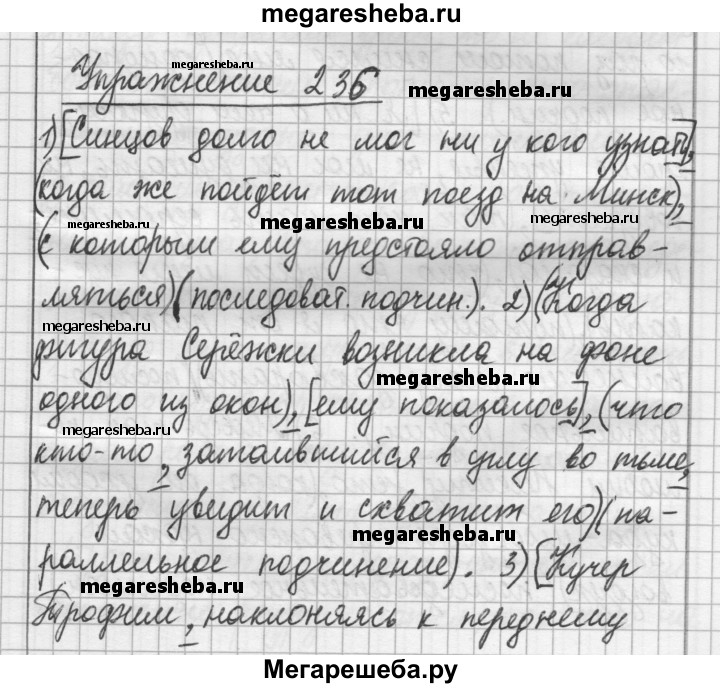 megaresheba.ru
Упражнение 236
megaresheba.ru
megaresheba.ru
1) [Синцов долго не мог ни у кого узнать],
(когда же пойдёт тот поезд на Минск),
megaresheba.ru
megaresheba.ru
megaresheba.ru
(с которым ему предстояло отправ-
ляться) (последоват. подчин.). 2) (Когда
megaresheba.ru
фигура Серёжки возникла на фоне
megaresheba.ru
одного из окон), [ему показалось], (что
megaresheba.ru
кто-то, затаившийся в углу во тьме,
теперь увидит и схватит его) (па-
megaresheba.ru
раллельное подчинение). 3) [Кучер
megaresheba.ru
Трофим, наклоняясь к переднему
Мегарешеба.ру